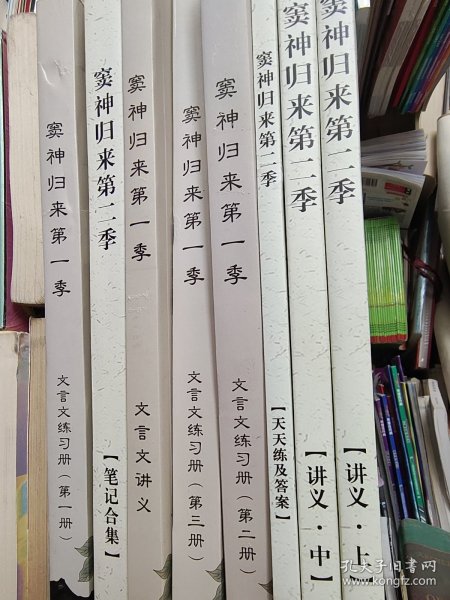 窦神归来第一季
文言文练习册（第一册）
窦神归来第二季
【笔记合集】
窦神归来第一季
文言文讲义
窦神归来第一季
文言文练习册（第三册）
窦神归来第一季
文言文练习册（第二册）
窦神归来第二季
【天天练及答案】
窦神归来第二季
【讲义·中】
窦神归来第二季
【讲义·上】
孔夫子旧书网